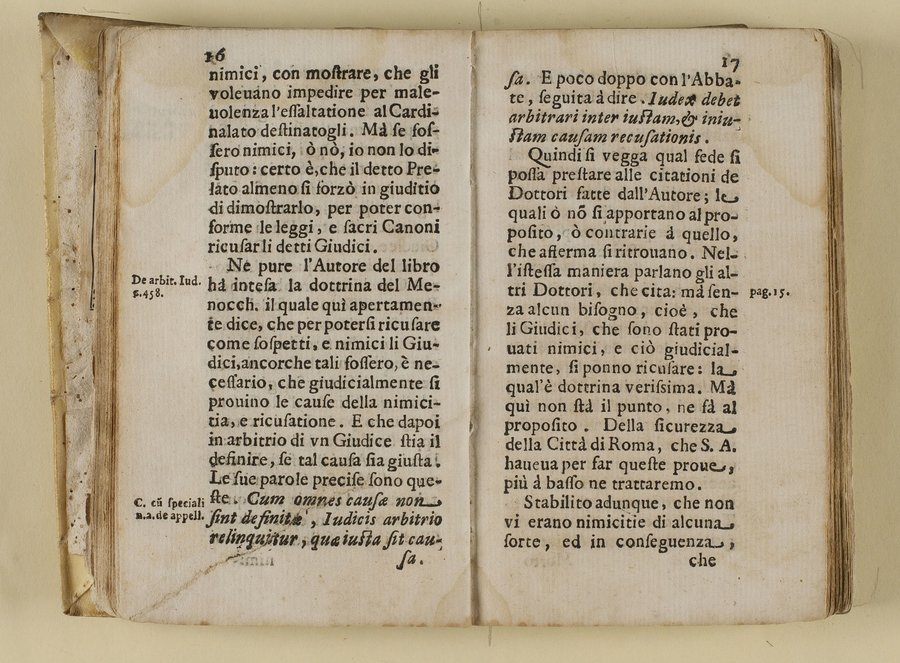 16
nimici, con moſtrare, che gli
voleuano impedire per male-
uolenza l'eſſaltatione al Cardi-
nalato deſtinatogli. Mà ſe foſ-
ſero nimici, ò nò, io non lo di-
ſputo: certo è, che il detto Pre-
lato almeno ſi forzò in giuditio
di dimoſtrarlo, per poter con-
forme le leggi, e ſacri Canoni
ricuſarli detti Giudici.
Ne pure l'Autore del libro
De arbit. Iud.
hà inteſa la dottrina del Me-
458.
nocch. il quale quì apertamen-
te dice, che per poterſi ricuſare
come ſoſpetti, e nimici li Giu-
dici, ancorche tali foſſero, è ne-
ceſſario, che giudicialmente ſi
prouino le cauſe della nimici-
tia, e ricuſatione. E che dapoi
in arbitrio di vn Giudice ſtia il
definire, ſe tal cauſa ſia giuſta.
Le ſue parole preciſe ſono que-
C. cũ ſpeciali
ſte. Cum omnes cauſæ non
n.a. de appell.
ſint definitæ, Iudicis arbitrio
relinquitur, quæ iuſta ſit cau-
ſa.
17
ſa. E poco doppo con l'Abba-
te, ſeguita à dire. Iudex debet
arbitrari inter iuſtam, & iniu-
ſtam cauſam recuſationis.
Quindi ſi vegga qual fede ſi
poſſa preſtare alle citationi de
Dottori fatte dall'Autore; le
quali ò nõ ſi apportano al pro-
poſito, ò contrarie à quello,
che afferma ſi ritrouano. Nel-
l'iſteſſa maniera parlano gli al-
tri Dottori, che cita: mà ſen-
pag. 15.
za alcun biſogno, cioè, che
li Giudici, che ſono ſtati pro-
uati nimici, e ciò giudicial-
mente, ſi ponno ricuſare: la
qual'è dottrina veriſsima. Mà
quì non ſtà il punto, ne fà al
propoſito. Della ſicurezza
della Città di Roma, che S. A.
haueua per far queſte proue,
più à baſſo ne trattaremo.
Stabilito adunque, che non
vi erano nimicitie di alcuna
ſorte, ed in conſeguenza,
che